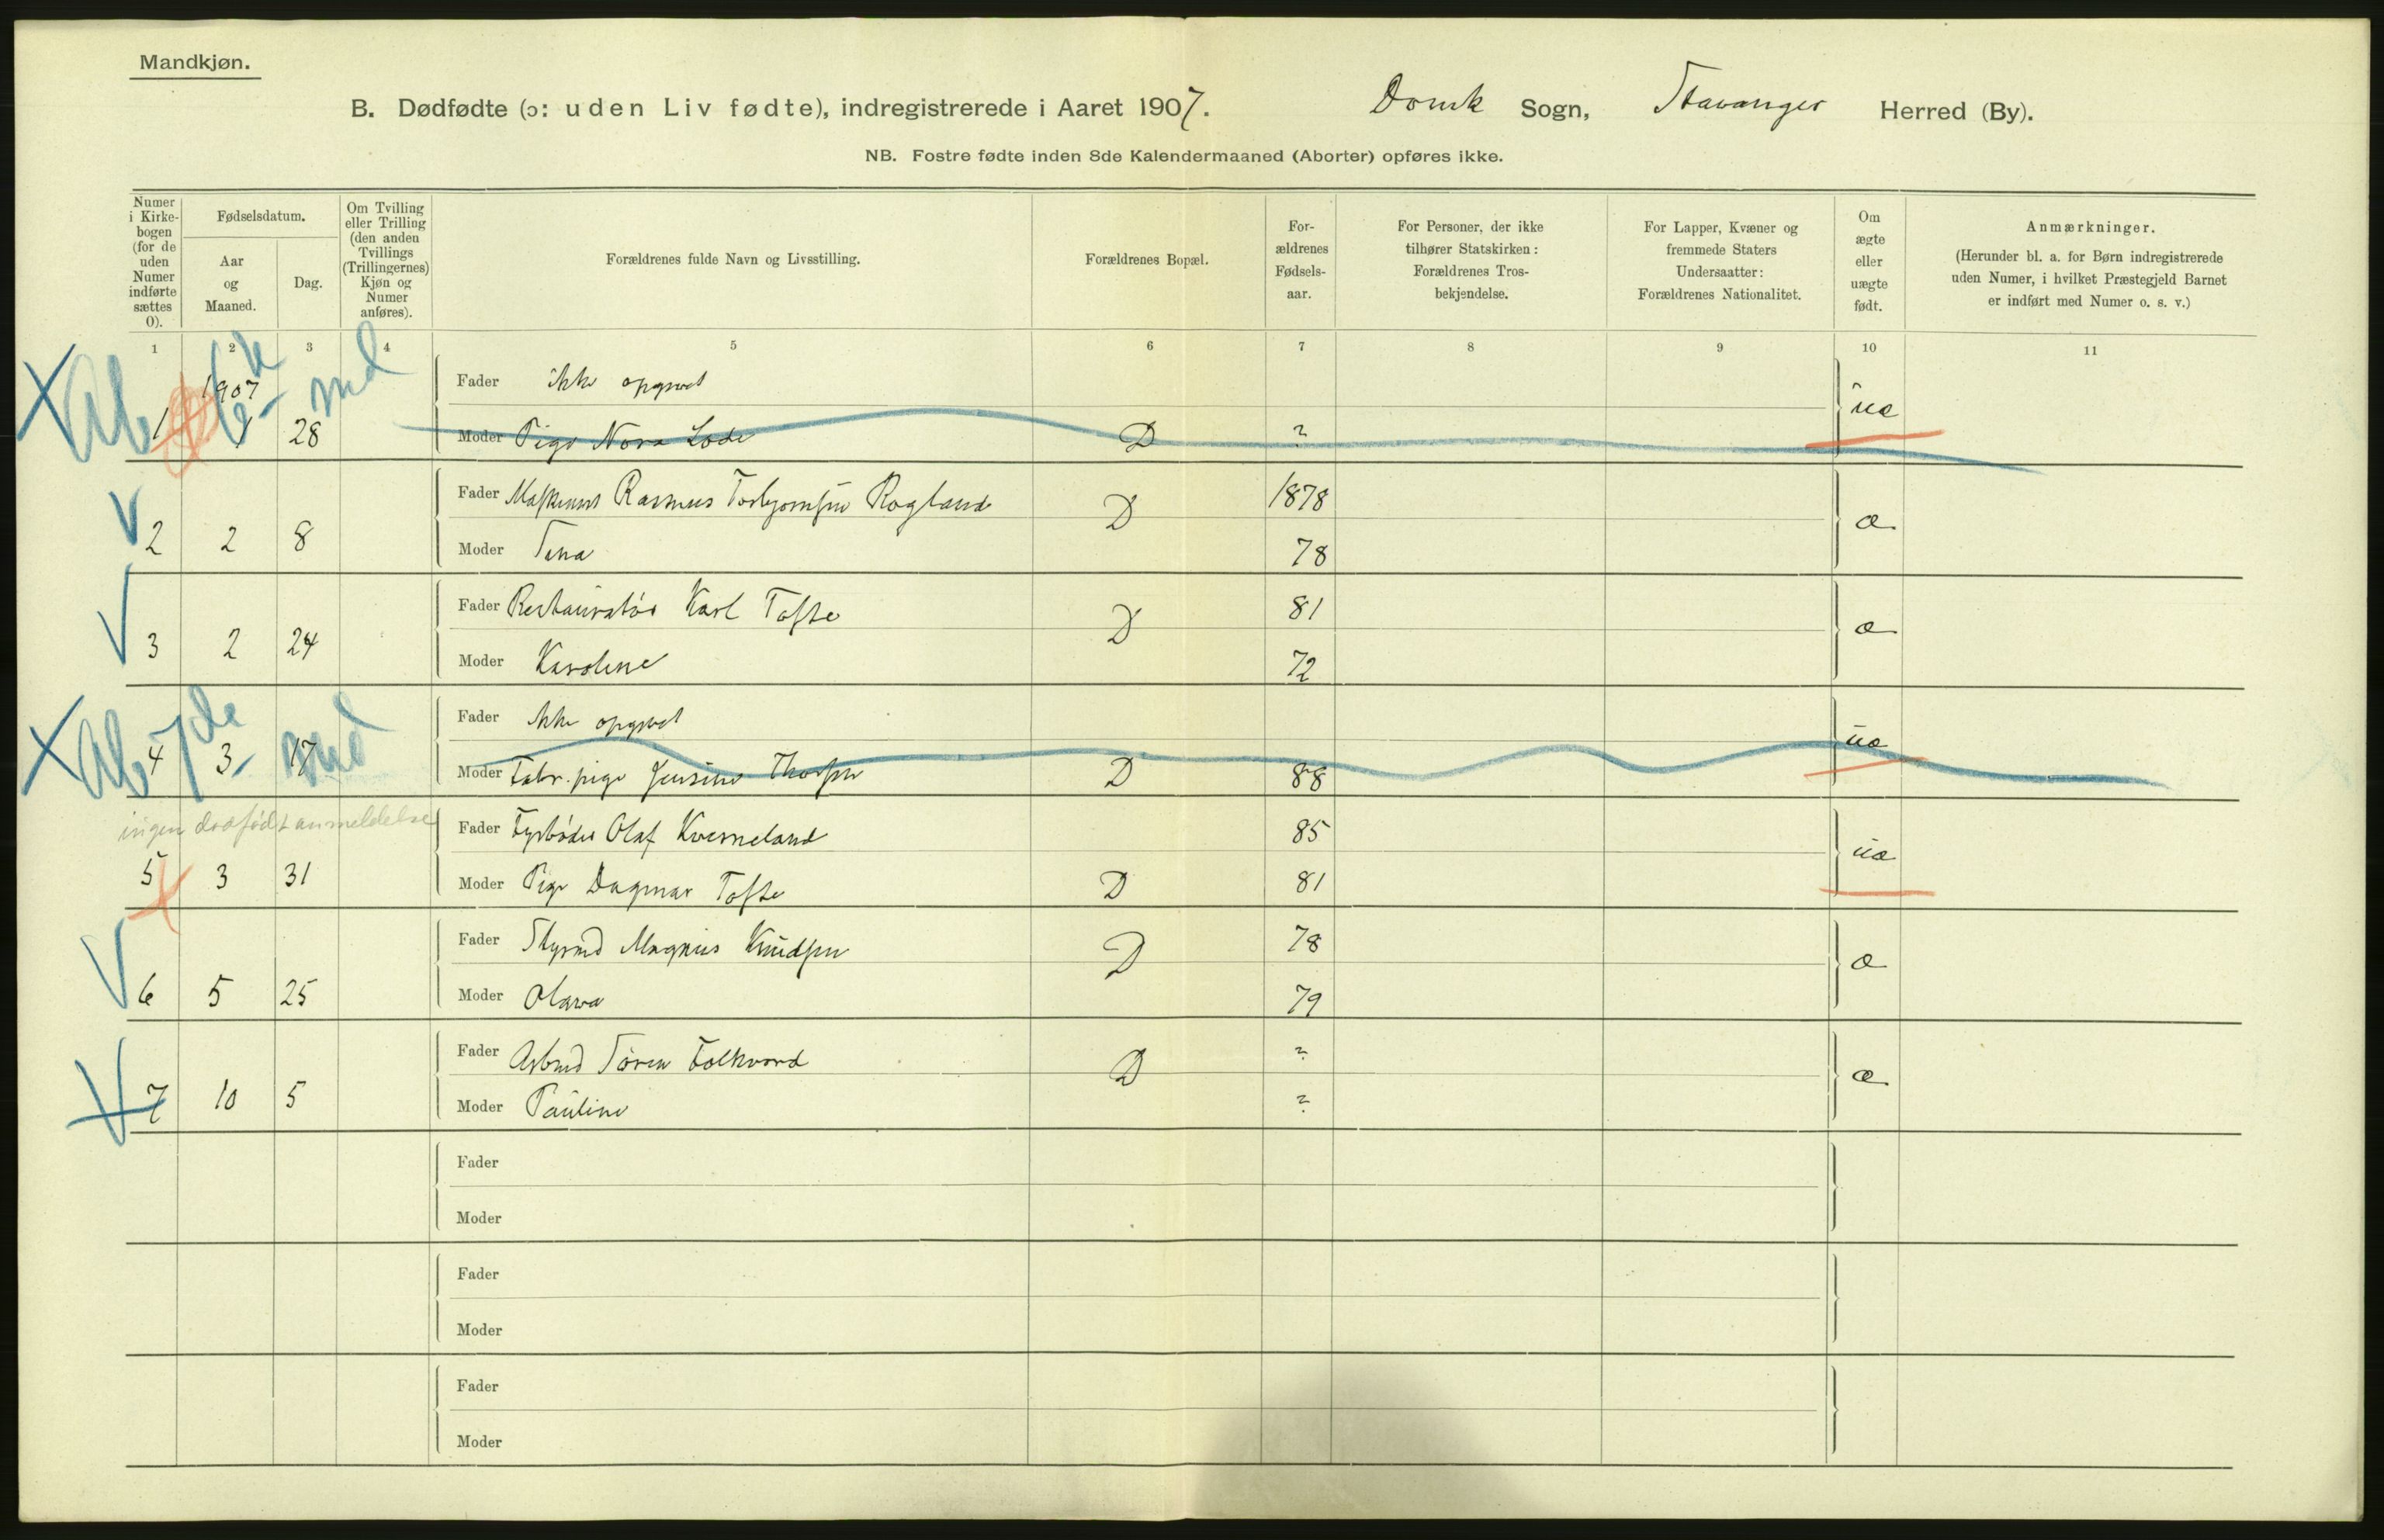 Mandkjøn.
B. Dødfødte (ɔ: uden Liv fødte), indregistrerede i Aaret 1907. Domk Sogn, Stavanger Herred (By).
NB. Fostre fødte inden 8de Kalendermaaned (Aborter) opføres ikke.
Numer i Kirkebogen (for de uden Numer indførte sættes 0).
Fødselsdatum.
Aar og Maaned.
Dag.
Om Tvilling eller Trilling (den anden Tvillings (Trillingernes) Kjøn og Numer anføres).
Forældrenes fulde Navn og Livsstilling.
Forældrenes Bopæl.
Forældrenes Fødselsaar.
For Personer, der ikke tilhører Statskirken: Forældrenes Trosbekjendelse.
For Lapper, Kvæner og fremmede Staters Undersaatter: Forældrenes Nationalitet.
Om ægte eller uægte født.
Anmærkninger.
(Herunder bl. a. for Børn indregistrerede uden Numer, i hvilket Præstegjeld Barnet er indført med Numer o. s. v.)
1 2 3 4 5 6 7 8 9 10 11
1907 Fader ikke opgivet uæ
Ab 6te md
1 1 28 Moder Pige Nora Lode D ?
Fader Rasmus Torbjørnsen Rogland D 1878 æ
2 2 8 Moder Tina 78
Fader Restauratør Karl Tofte D 81 æ
3 2 24 Moder Karoline 72
Fader ikke opgivet uæ
Ab 7de md
4 3 17 Moder Fabr.pige Jensine Thorsen D 88
ingen dødfødt anmeldelse
Fader Fyrbøder Olaf Kverneland 85 uæ
5 3 31 Moder Pige Dagmar Tofte D 81
Fader Styrmd Magnus Knudsen D 78 æ
6 5 25 Moder Olava 79
Fader Arbmd Søren Folkvord D ? æ
7 10 5 Moder Pauline ?
Fader
Moder
Fader
Moder
Fader
Moder